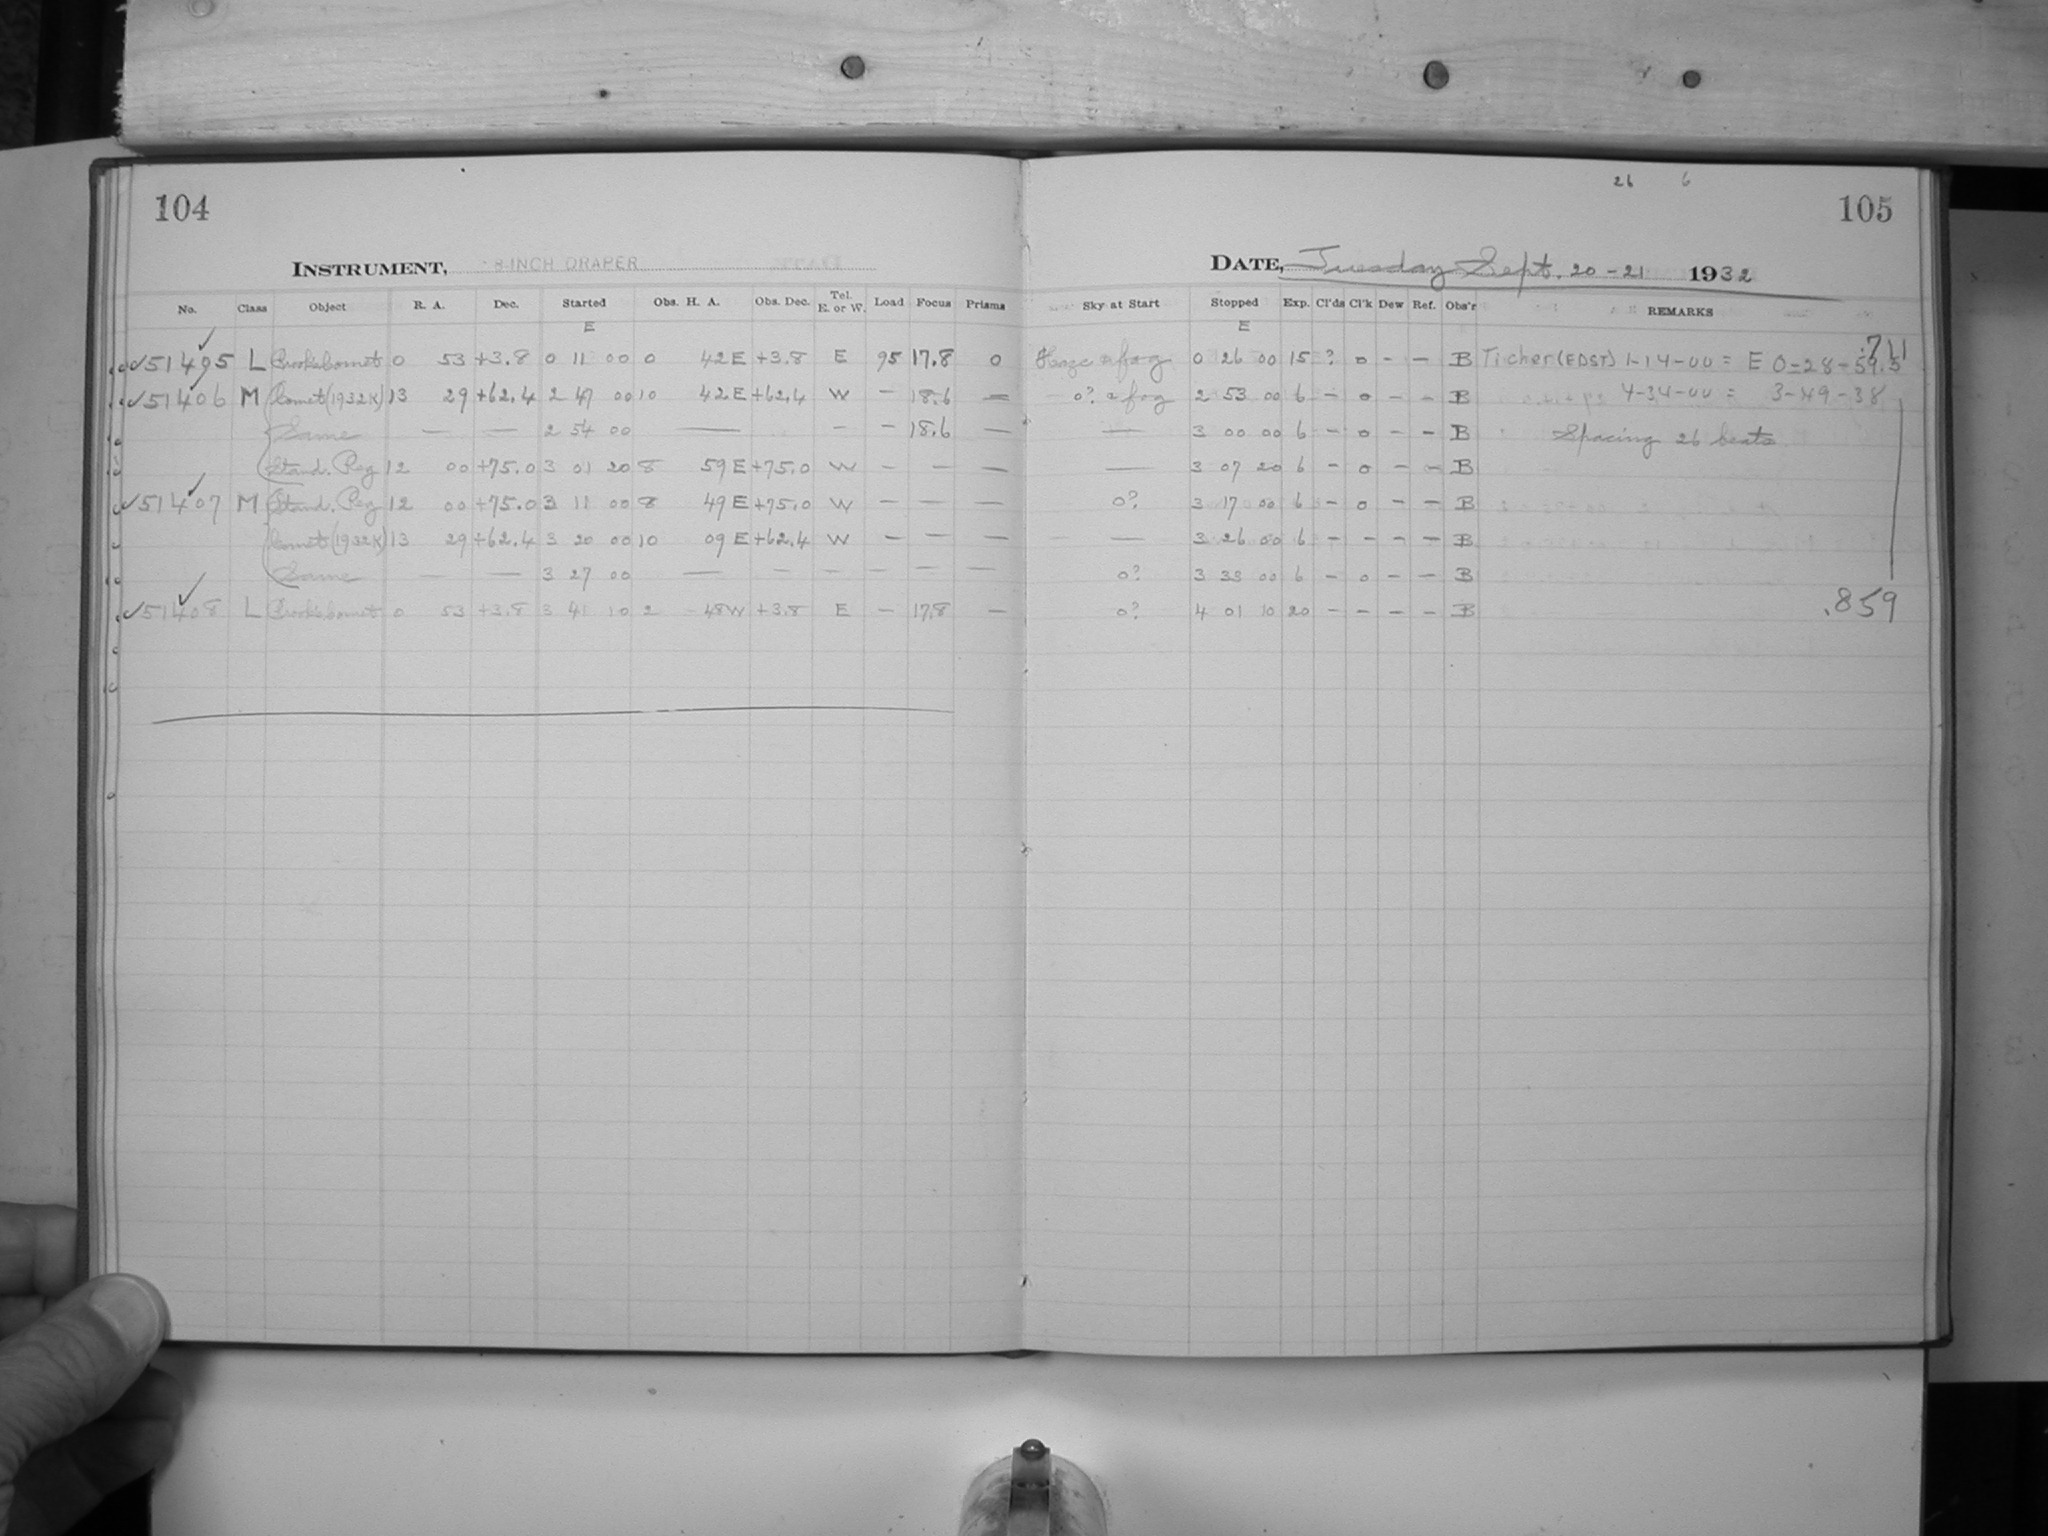 26 6
104
105
INSTRUMENT, 8-INCH DRAPER
DATE, Tuesday Sept. 20-21 1932
No. Class Object R. A. Dec. Started Obs. H. A. Obs. Dec. Tel. E. or W. Load Focus Prisms Sky at Start Stopped Exp. Cl'ds Cl'k Dew Ref. Obs'r REMARKS
E E
.711
✓51405 L Brooks comet 0 53 +3.8 0 11 00 0 42 E +3.8 E 95 17.8 0 Haze & fog 0 26 00 15 ? 0 - - B Ticker (EDST) 1-14-00 = E 0-28-59.5
✓51406 M Comet (1932K) 13 29 +62.4 2 47 00 10 42 E +62.4 W — 18.6 — 0? & fog 2 53 00 6 - 0 - - B 4-34-00 = 3-49-38
Same — — 2 54 00 — — — 18.6 — — 3 00 00 6 - 0 - - B Spacing 26 beats
Stand. Reg 12 00 +75.0 3 01 20 8 59 E +75.0 W — — — — 3 07 20 6 - 0 - - B
✓51407 M Stand. Reg 12 00 +75.0 3 11 00 8 49 E +75.0 W — — — 0? 3 17 00 6 - 0 - - B
Comet (1932K) 13 29 +62.4 3 20 00 10 09 E +62.4 W — — — — 3 26 00 6 - - - - B
Same — — 3 27 00 — — — — — — 0? 3 33 00 6 - 0 - - B
✓51408 L Brooks comet 0 53 +3.8 3 41 10 2 48 W +3.8 E — 17.8 — 0? 4 01 10 20 - - - - B .859